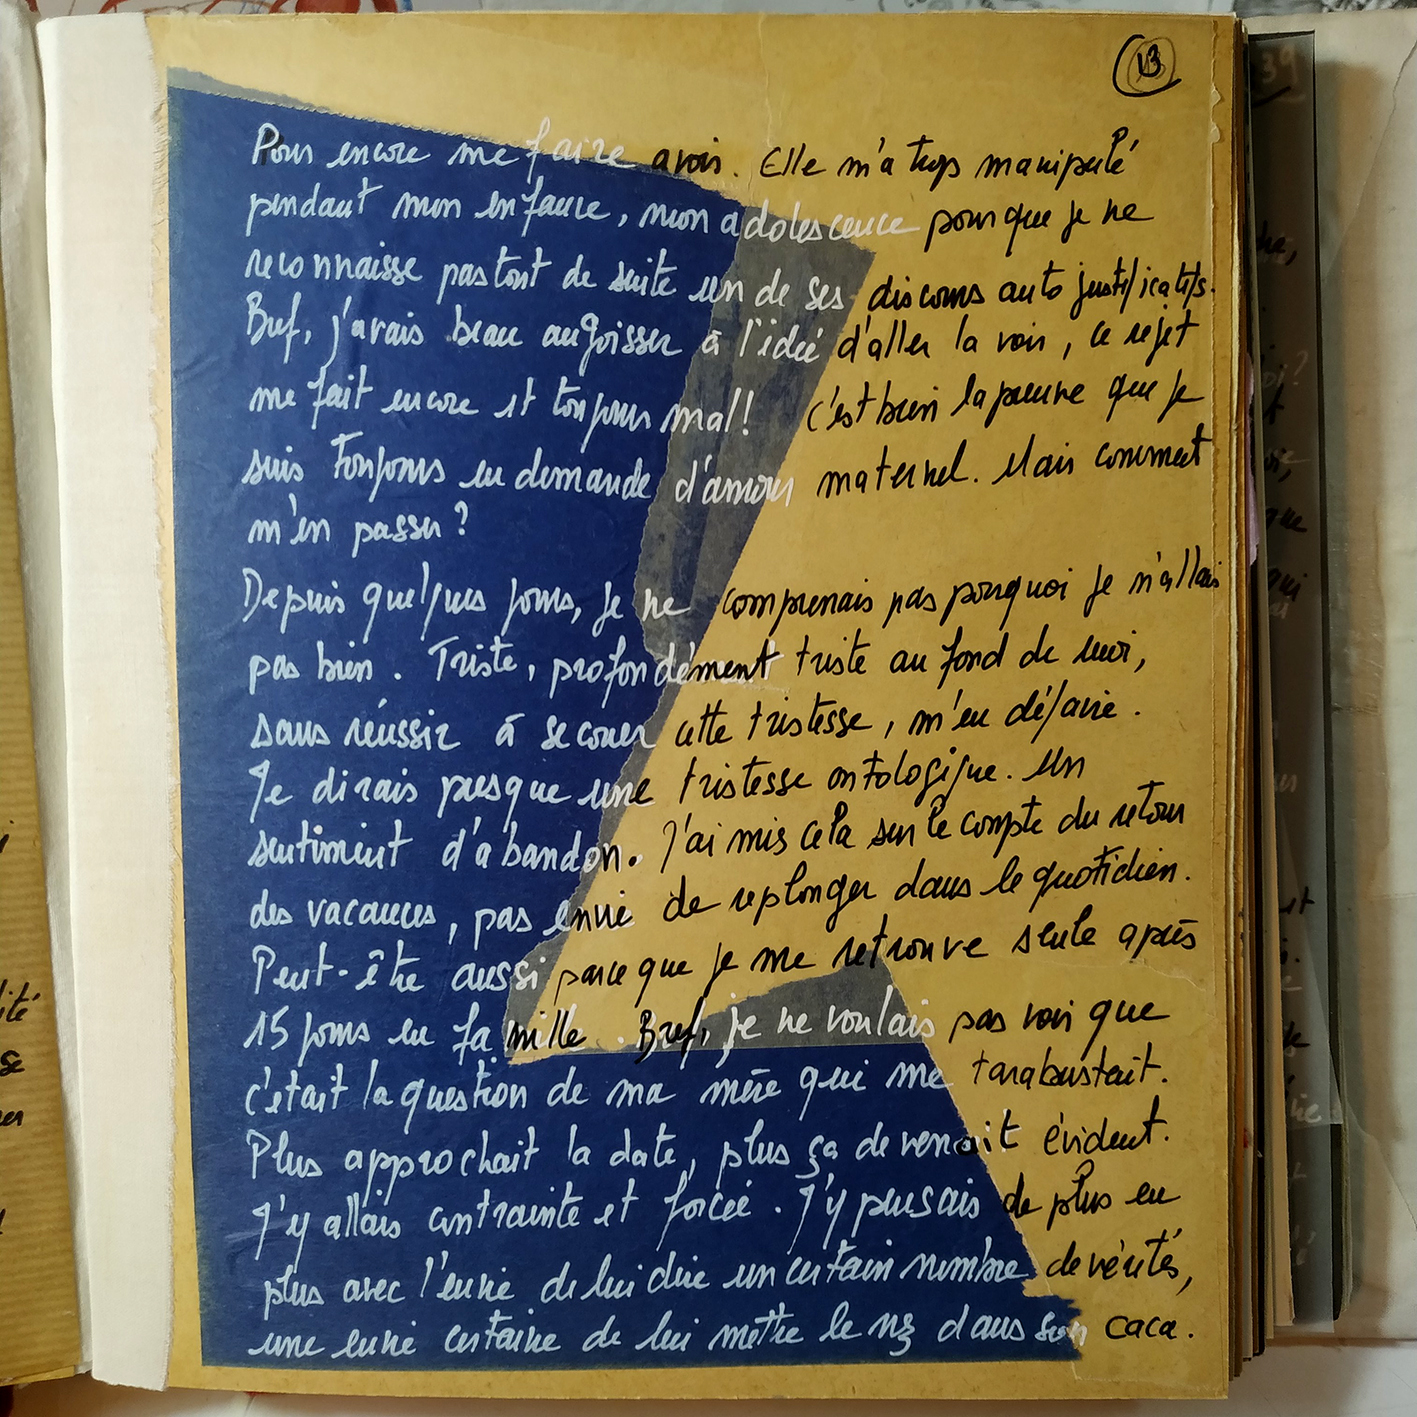 13
Pour encore me faire avoir. Elle m'a trop manipulé
pendant mon enfance, mon adolescence pour que je ne
reconnaisse pas tout de suite un de ses discours auto justificatifs.
Bref, j'avais beau angoisser à l'idée d'aller la voir, ce rejet
me fait encore et toujours mal! c'est bien la preuve que je
suis toujours en demande d'amour maternel. Mais comment
m'en passer?
Depuis quelques jours, je ne comprenais pas pourquoi je n'allais
pas bien. Triste, profondément triste au fond de moi,
sans réussir à secouer cette tristesse, m'en défaire.
Je dirais presque une tristesse ontologique. Un
sentiment d'abandon. J'ai mis cela sur le compte du retour
des vacances, pas envie de replonger dans le quotidien.
Peut-être aussi parce que je me retrouve seule après
15 jours en famille. Bref, je ne voulais pas voir que
c'était la question de ma mère qui me tarabustait.
Plus approchait la date, plus ça devenait évident.
J'y allais contrainte et forcée. J'y pensais de plus en
plus avec l'envie de lui dire un certain nombre de vérités,
une envie certaine de lui mettre le nez dans son caca.